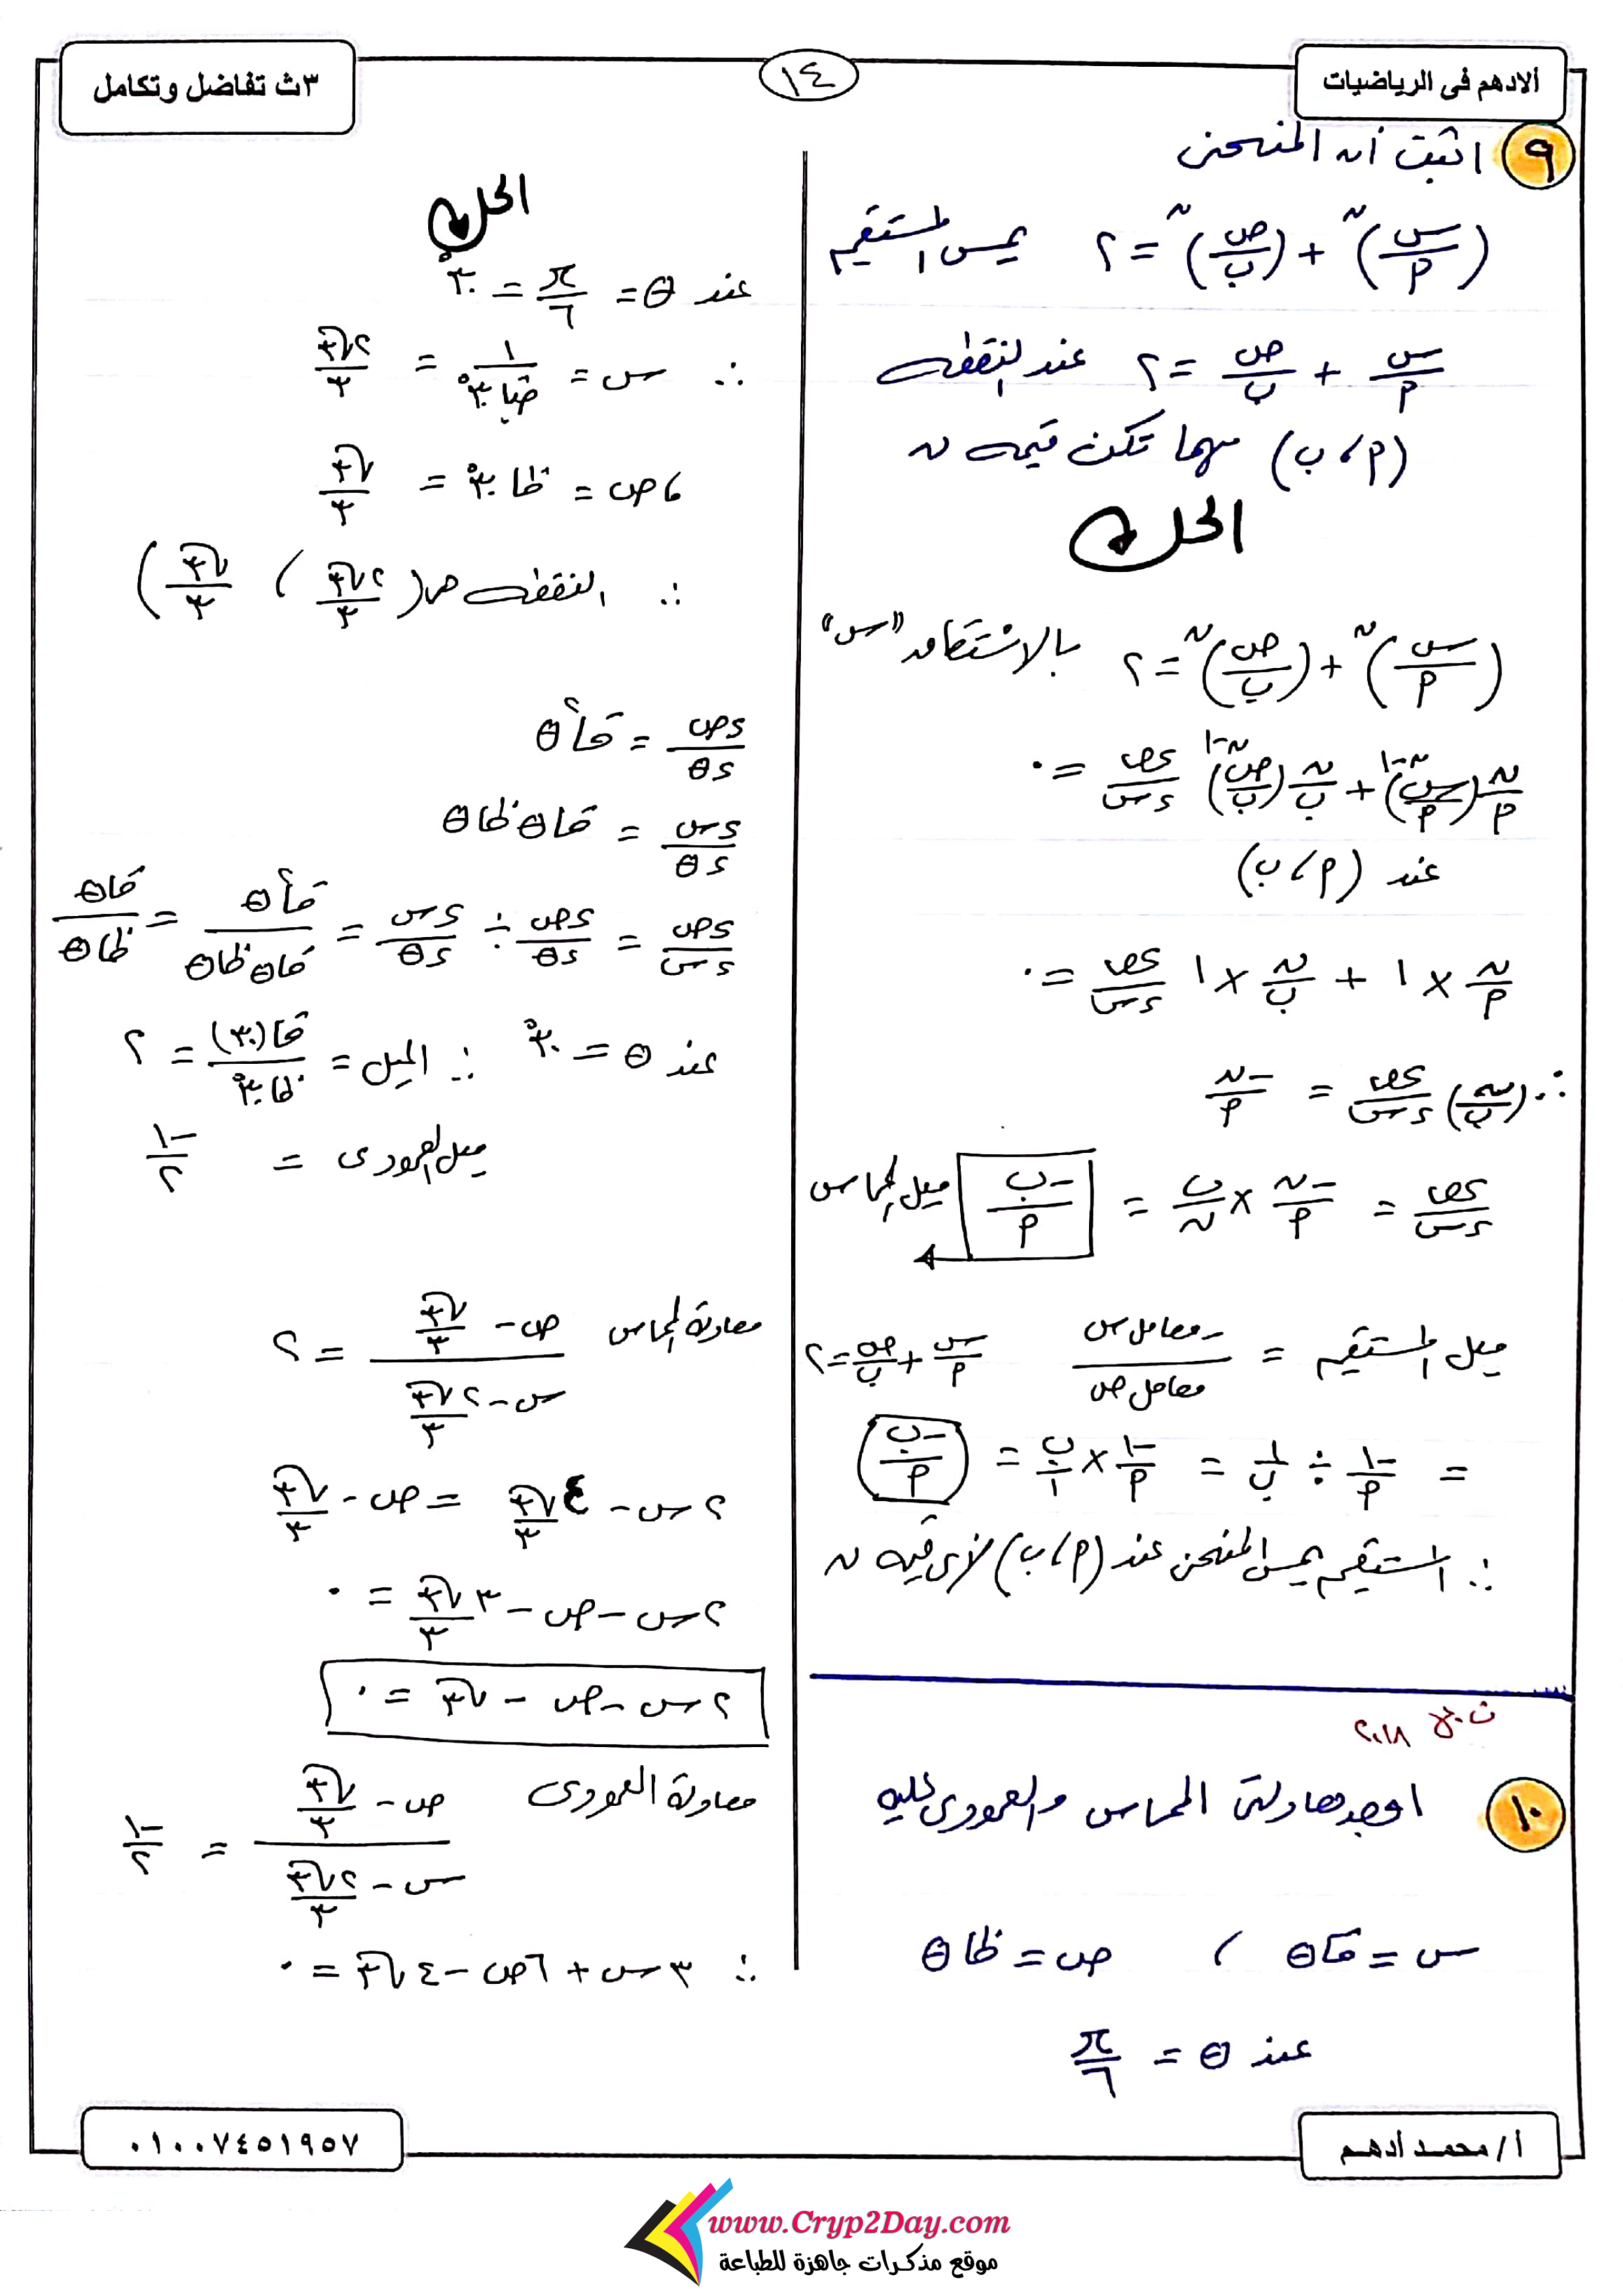 ألادهم فى الرياضيات
١٤
٣ث تفاضل وتكامل
٩ اثبت أن المنحنى
(س/٢)^ن + (ص/ب)^ن = ٢ يمس المستقيم
س/٢ + ص/ب = ٢ عند النقطة
(٢ ، ب) مهما تكن قيمة ن
الحل
(س/٢)^ن + (ص/ب)^ن = ٢ بالاشتقاق "س"
ن/٢ (س/٢)^(ن-١) + ن/ب (ص/ب)^(ن-١) ءص/ءس = ٠
عند (٢ ، ب)
ن/٢ × ١ + ن/ب × ١ ءص/ءس = ٠
∴ (ن/ب) ءص/ءس = -ن/٢
ءص/ءس = -ن/٢ × ب/ن = -ب/٢ ميل المماس
ميل المستقيم = -معامل س/معامل ص س/٢ + ص/ب = ٢
= -١/٢ ÷ ١/ب = -١/٢ × ب/١ = -ب/٢
∴ المستقيم يمس المنحنى عند (٢ ، ب) لأى قيمة ن
٢٠١٨
١٠ اوجد معادلتى المماس والعمودى عليه
س = قا θ ، ص = ظا θ
عند θ = π/٦
الحل
عند θ = π/٦ = ٣٠°
∴ س = ١/جتا ٣٠° = ٢√٣/٣
، ص = ظا ٣٠° = √٣/٣
∴ النقطة هى (٢√٣/٣ ، √٣/٣)
ءص/ءθ = قا²θ
ءس/ءθ = قاθ ظاθ
ءص/ءس = ءص/ءθ ÷ ءس/ءθ = قا²θ/قاθ ظاθ = قاθ/ظاθ
عند θ = ٣٠° ∴ الميل = قا(٣٠)/ظا ٣٠° = ٢
ميل العمودى = -١/٢
معادلة المماس (ص - √٣/٣)/(س - ٢√٣/٣) = ٢
٢س - ٤√٣/٣ = ص - √٣/٣
٢س - ص - ٣√٣/٣ = ٠
٢س - ص - √٣ = ٠
معادلة العمودى (ص - √٣/٣)/(س - ٢√٣/٣) = -١/٢
∴ ٣س + ٦ص - ٤√٣ = ٠
أ/ محمد أدهم
٠١٠٠٧٤٥١٩٥٧
www.Cryp2Day.com
موقع مذكرات جاهزة للطباعة